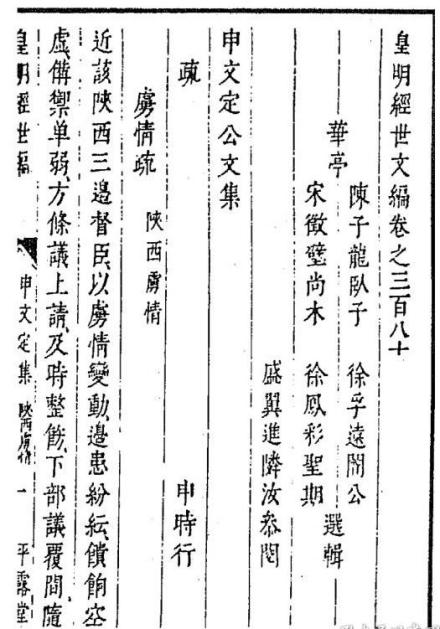 皇明經世文編卷之三百八十
華亭
陳子龍臥子 徐孚遠闇公
宋徵璧尚木 徐鳳彩聖期
選輯
盛翼進隣汝叅閱
申文定公文集
疏 申時行
虜情疏 陝西虜情
近該陝西三邊督臣以虜情變動邊患紛紜饋餉空
虛備禦单弱方條議上請及時整飭下部議覆間隨
皇明經世編 申文定集 陝西虜情 一 平露堂